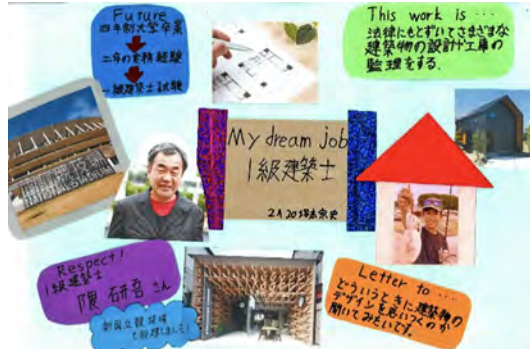 Future
四年制大学卒業
二年の実務経験
一級建築士試験
This work is ・・・
法律にもとずいてさまざまな
建築物の設計や工事の
監理をする。
My dream job
1級建築士
Respect!
1級建築士
隈 研吾 さん
新国立競技場
Letter to ・・・
どういうときに建築物の
デザインを思いつくのか
聞いてみたいです。